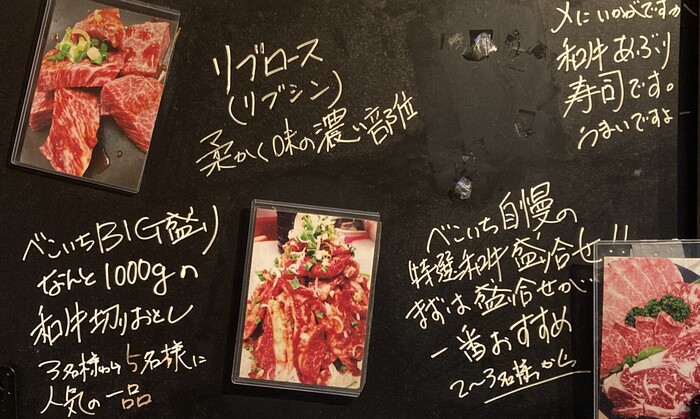 リブロース
(リブシン)
柔かく味の濃い部位
〆にいかがですか
和牛あぶり
寿司です。
うまいですよ
べこいちBIG盛り
なんと1000gの
和牛切りおとし
3名様から5名様に
人気の一品
べこいち自慢の
特選和牛盛り合せ!!
まずは盛り合せが…
一番おすすめ
2〜3名様から